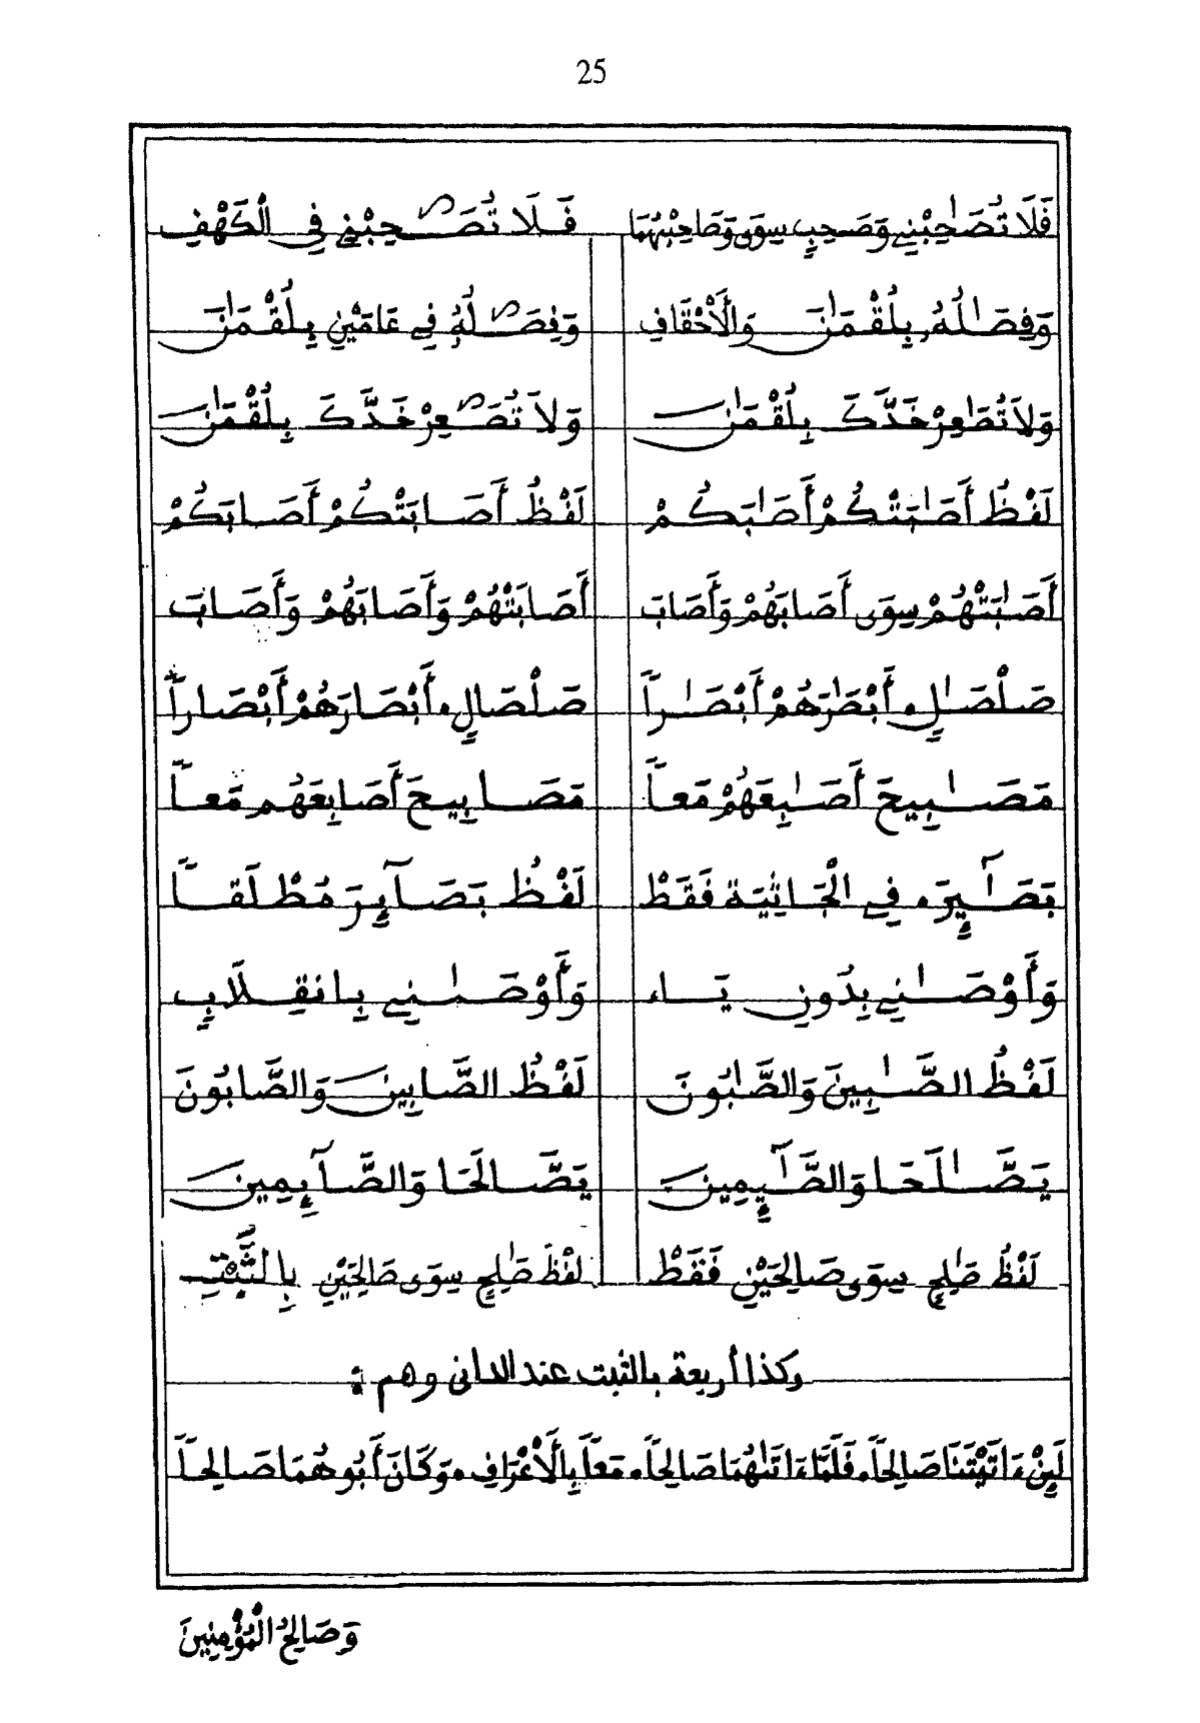 25
فَلَا تُصَٰحِبْنِے وَصَٰحِبٍ سِوَى وَصَاحِبْهُمَا فَلَا تُصَٰحِبْنِے فِے الْكَهْفِ
وَفِصَٰلُهُۥ بِلُقْمَٰنَ وَالْأَحْقَافِ وَفِصَٰلُهُۥ فِے عَامَيْنِ بِلُقْمَٰنَ
وَلَا تُصَٰعِرْ خَدَّكَ بِلُقْمَٰنَ وَلَا تُصَٰعِرْ خَدَّكَ بِلُقْمَٰنَ
لَفْظُ أَصَٰبَتْكُمْ أَصَٰبَكُمْ لَفْظُ أَصَابَتْكُمْ أَصَابَكُمْ
أَصَٰبَتْهُمْ سِوَى أَصَابَهُمْ وَأَصَابَ أَصَابَتْهُمْ وَأَصَابَهُمْ وَأَصَابَ
صَلْصَٰلٍ. أَبْصَٰرَهُمْ أَبْصَٰراً صَلْصَالٍ. أَبْصَارَهُمْ أَبْصَاراً
مَصَٰبِيحَ أَصَٰبِعَهُمْ مَعاً مَصَابِيحَ أَصَابِعَهُم مَعاً
بَصَٰٓئِرَ. فِے الْجَاثِيَةِ فَقَطْ لَفْظُ بَصَآئِرَ مُطْلَقاً
وَأَوْصَٰنِے بِدُونِ يَاء وَأَوْصَىٰنِے بِانقِلَابٍ
لَفْظُ الصَّٰبِينَ وَالصَّٰبُونَ لَفْظُ الصَّابِينَ وَالصَّابُونَ
يَصَّٰلَحَا وَالصَّٰٓئِمِينَ يَصَّالَحَا وَالصَّآئِمِينَ
لَفْظُ صَٰلِحٍ سِوَى صَالِحَيْنِ فَقَطْ لَفْظُ صَٰلِحٍ سِوَى صَالِحَيْنِ بِالثَّبْتِ
وكذا أربعة بالثبت عند الدانى وهم :
لَئِنْ ءَاتَيْتَنَا صَالِحاً. فَلَمَّا ءَاتَىٰهُمَا صَالِحاً. مَعاً بِالْأَعْرَافِ. وَكَانَ أَبُوهُمَا صَالِحاً
وَصَالِحُ الْمُؤْمِنِينَ